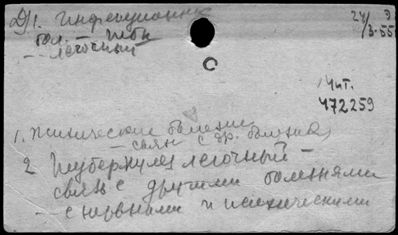 Д) 1. Инфекционн
бол. — Тбк
— легочный
24/
1 Чит.
472259
1. Психические болезни
— связь с др. болезня
2 Туберкулез легочный —
связь с другими болезнями
— с нервными и психическими